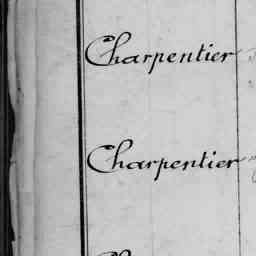 Charpentier
Charpentier